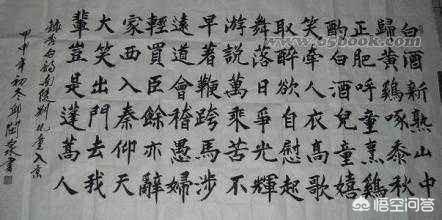 白酒新熟山中
歸黃鷄啄黍秋
正肥呼童烹鷄
酌白酒兒童嬉
笑牽人衣高歌
取醉欲自慰起
舞落日爭光輝
游說萬乘苦不
早著鞭跨馬涉
遠道會稽愚婦
輕買臣餘亦辭
家西入秦仰天
大笑出門去我
輩豈是蓬蒿人
李白詩南陵別兒童入京
甲申年初冬 書
悟空问答